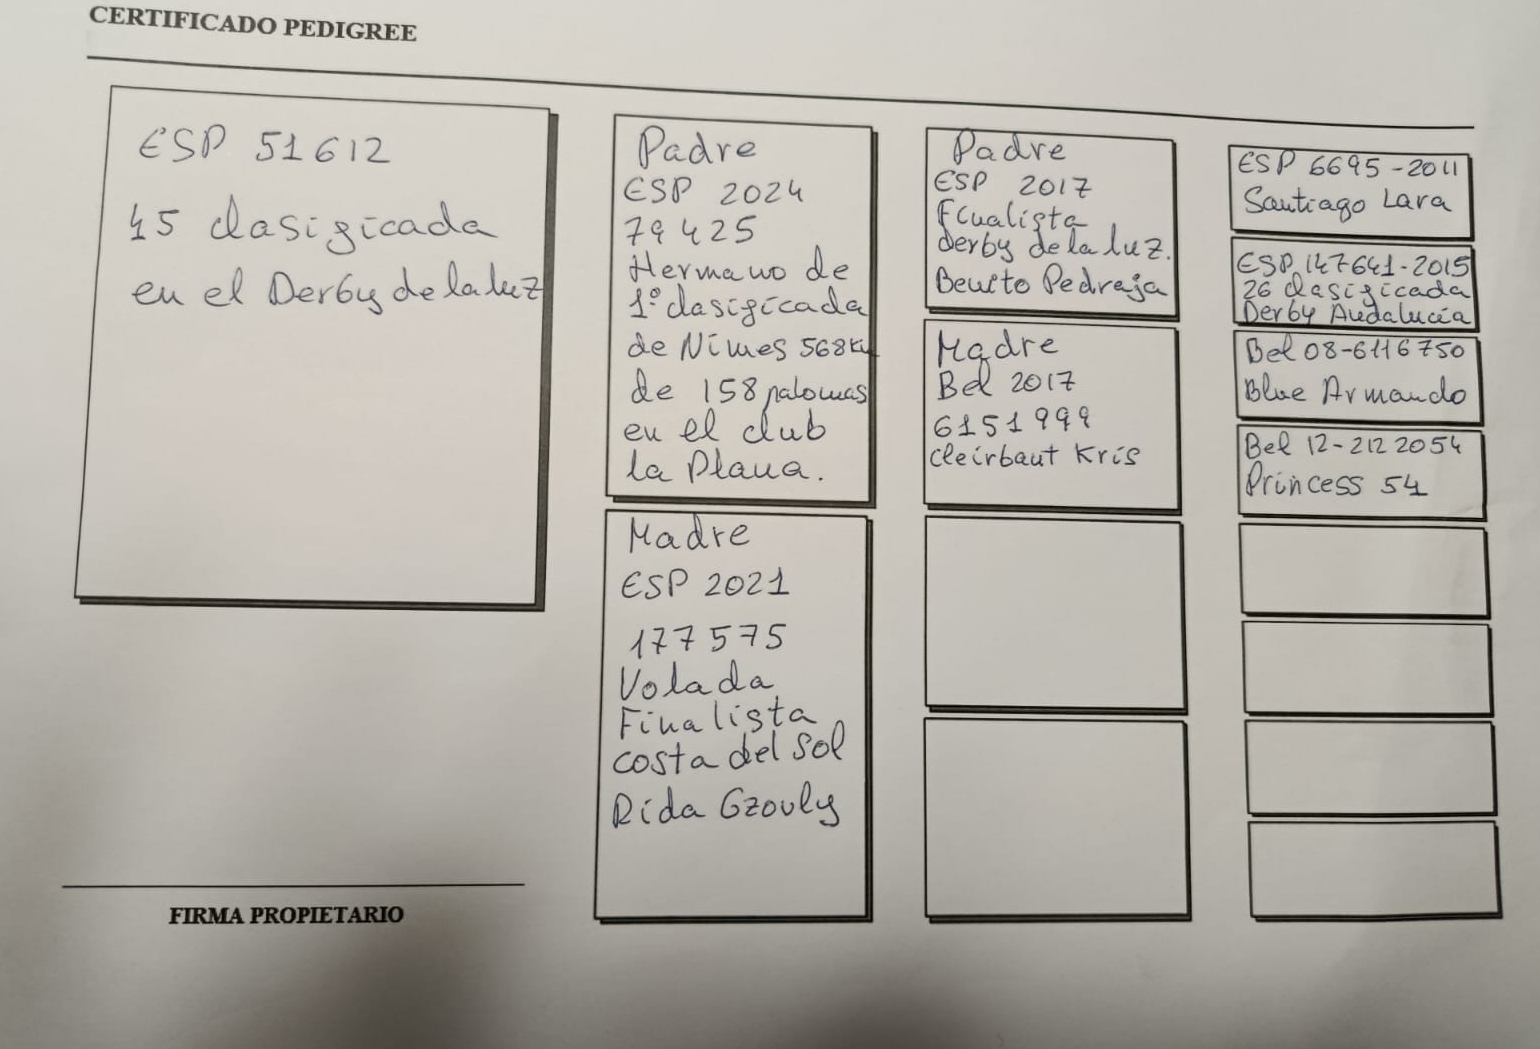 CERTIFICADO PEDIGREE
ESP 51612
45 clasificada
en el Derby de la luz
Padre
ESP 2024
79425
Hermano de
1º clasificada
de Nimes 568Km
de 158 palomas
en el club
la Plana.
Madre
ESP 2021
177575
Volada
Finalista
costa del Sol
Rida Gzouly
Padre
ESP 2017
Finalista
derby de la luz.
Benito Pedraja
Madre
Bel 2017
6151999
Cleirbaut Kris
ESP 6695-2011
Santiago Lara
ESP 147641-2015
26 clasificada
Derby Andalucía
Bel 08-6116750
Blue Armando
Bel 12-2122054
Princess 54
FIRMA PROPIETARIO